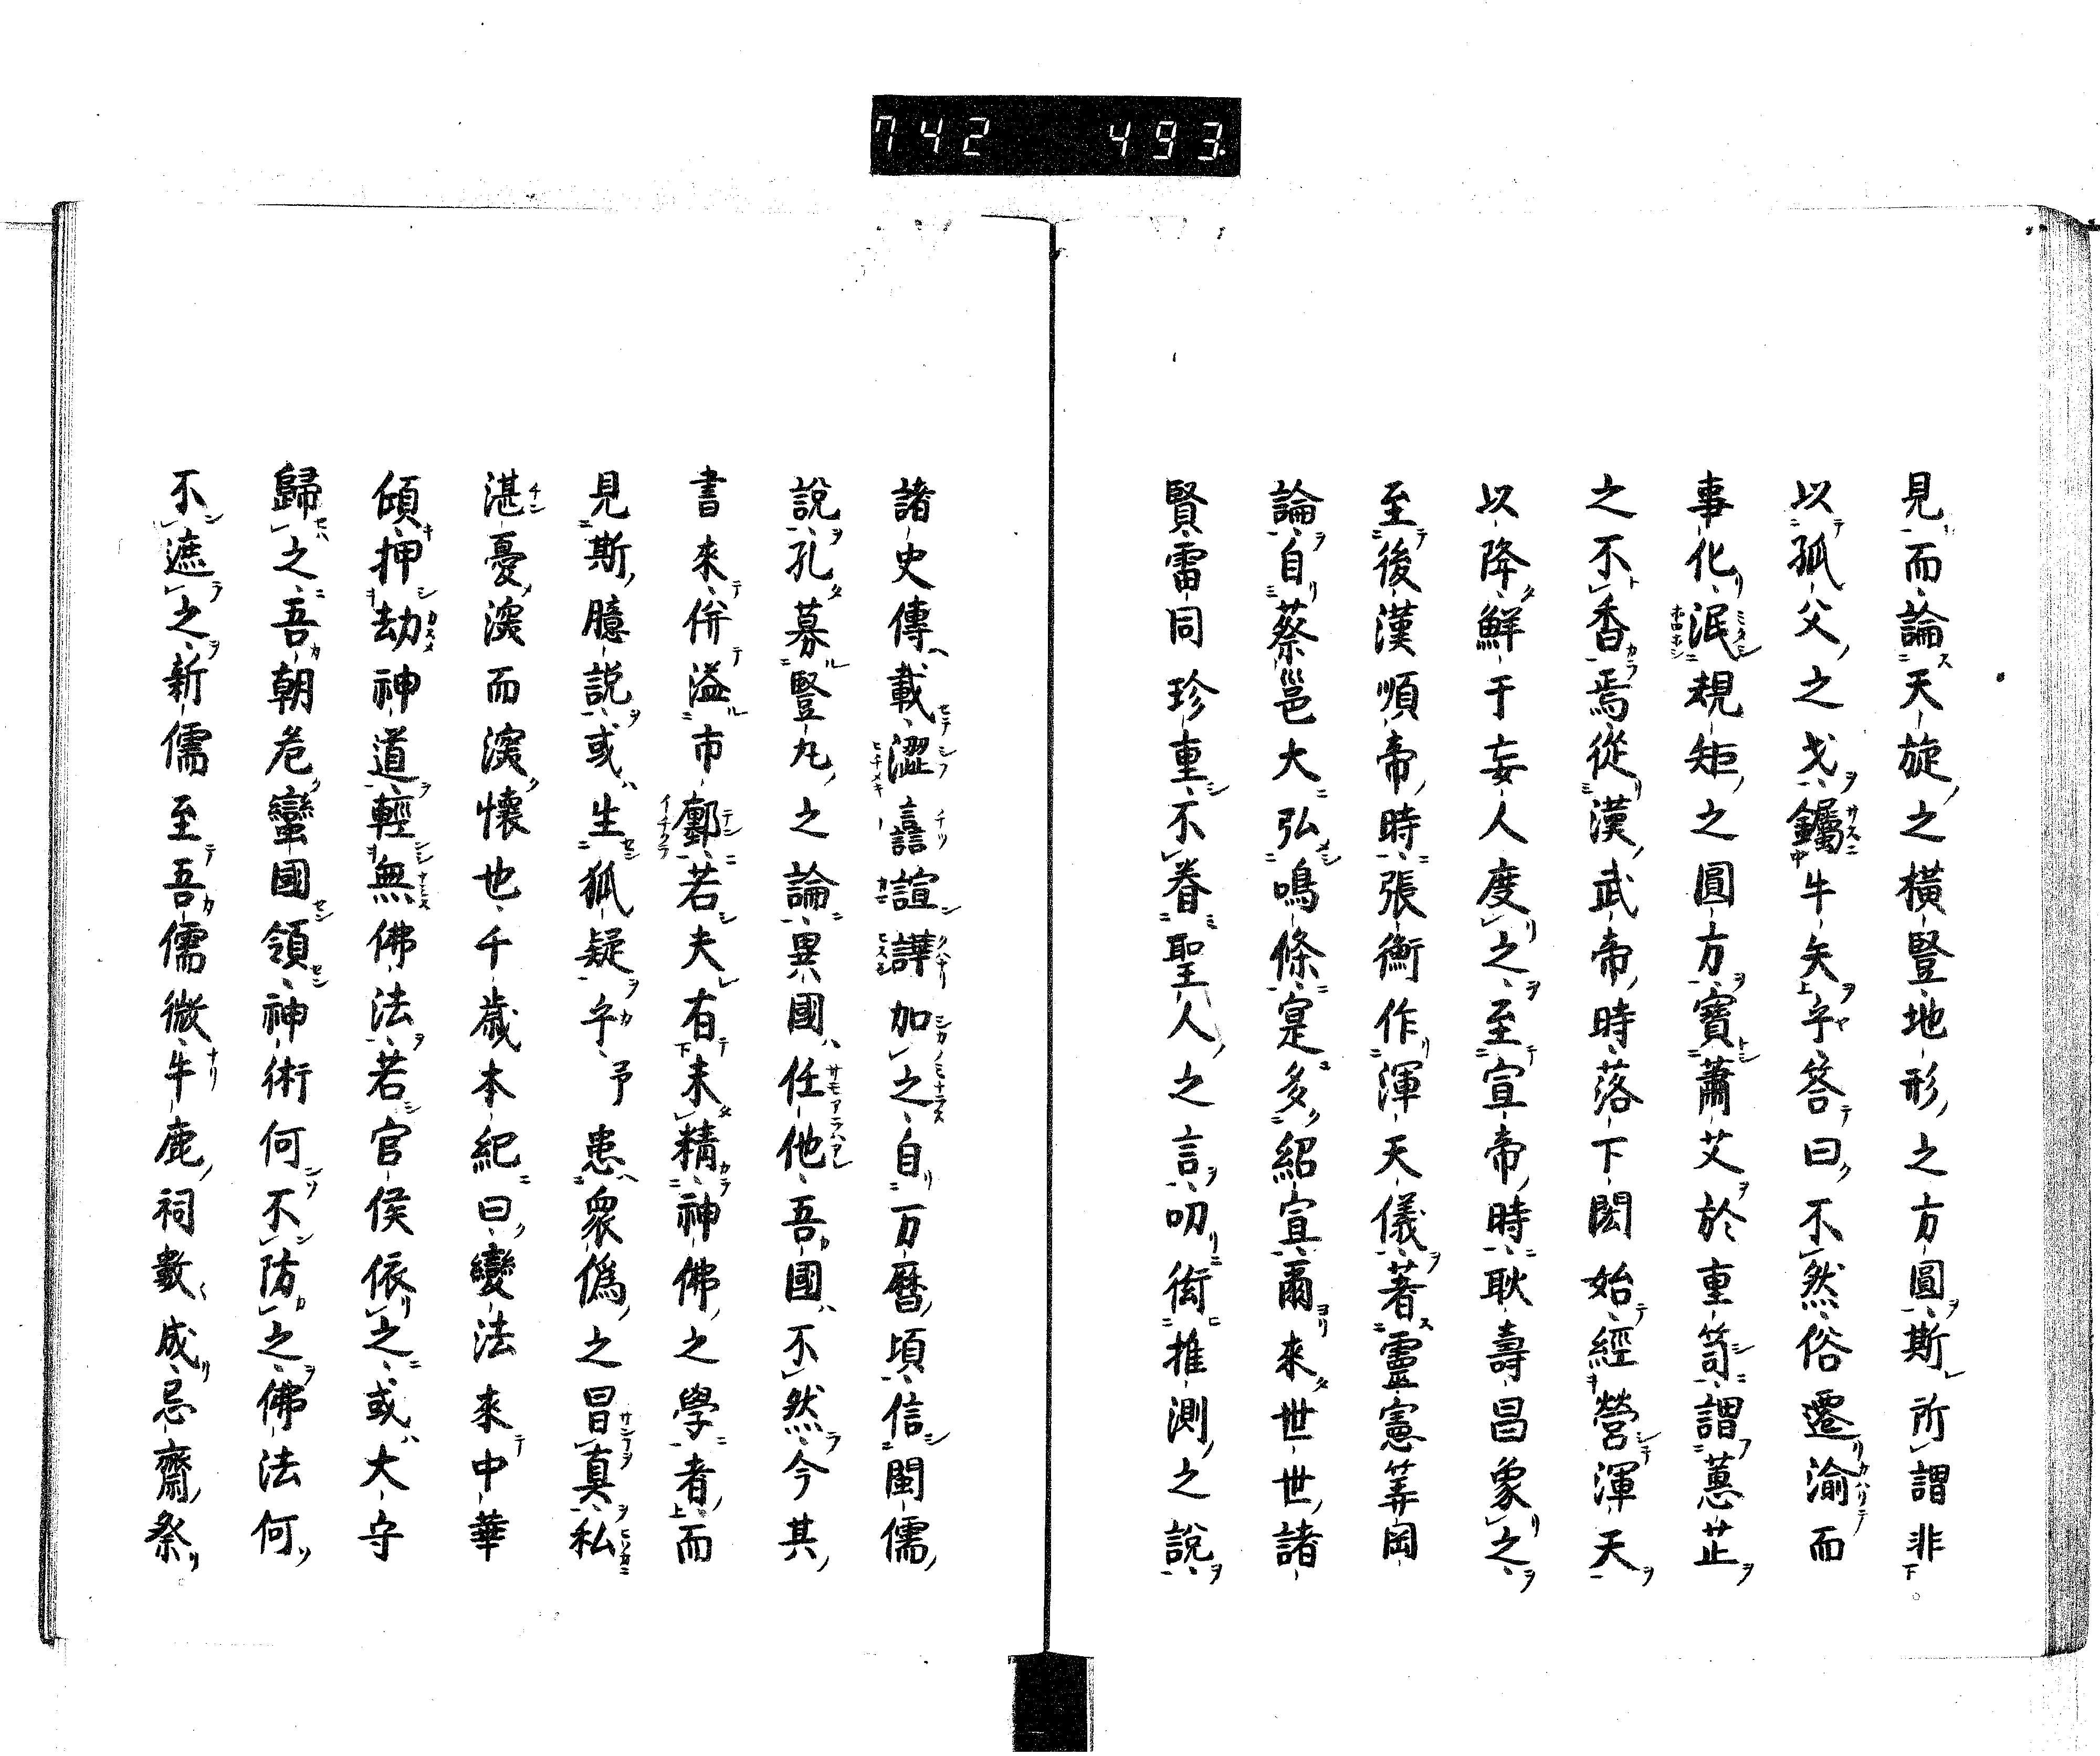 742 493
見而論天旋之橫豎地形之方圓斯所謂非
以孤父之戈钃牛矢乎答曰不然俗遷渝而
事化泯規矩之圓方寶蕭艾於重笥謂蕙芷
之不香焉從漢武帝時落下閎始經營渾天
以降鮮于妄人度之至宣帝時耿壽昌象之
至後漢順帝時張衡作渾天儀著靈憲筭罔
論自蔡邕大弘鳴條寔多紹宣爾來世世諸
賢雷同珍重不眷聖人之言叨衒推測之說
諸史傳載澀譶諠譁加之自万曆頃信閩儒
說孔募豎丸之論異國任他吾國不然今其
書來併溢市鄽若夫有未精神佛之學者而
見斯臆說或生狐疑乎予患衆僞之冒真私
湛憂湥而湥懷也千歲本紀曰變法來中華
傾押劫神道輕無佛法若官侯依之或大守
歸之吾朝危蠻國領神術何不防之佛法何
不遮之新儒至吾儒微牛鹿祠數成忌齋祭